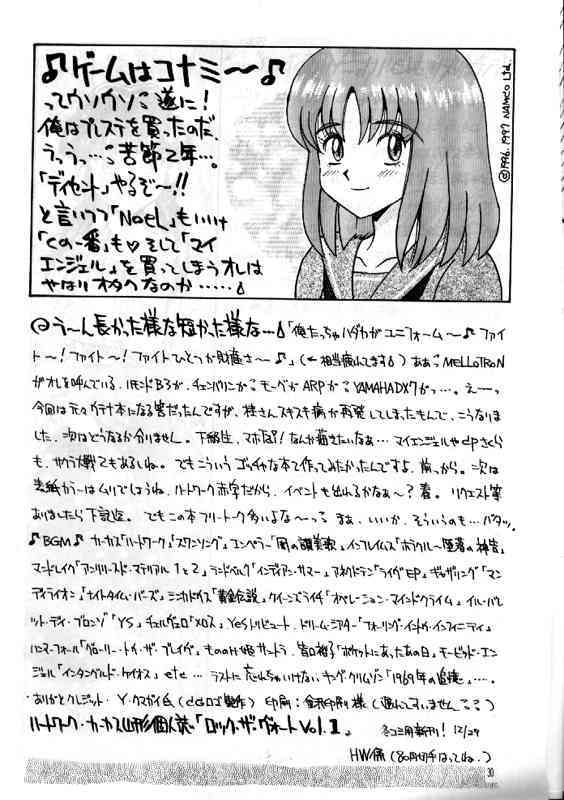 ♪ゲームはコナミ〜♪
ってウソウソ 遂に!
俺はプレステを買ったのだ
うっうっ…苦節2年…。
「ディセント」やるぞ〜!!
と言いつつ「NoeL」もいいけ
「くの一番」も♡そして「マイ
エンジェル」を買ってしまうオレは
やはりオタクなのか……
©1996, 1997 NAMCO Ltd.
@う〜ん長かった様な短かった様な…「俺たっちゃハダカがユニフォーム〜♪ファイ
ト〜!ファイト〜!ファイトひとつが財産さ〜♪」(←相当疲れてます)ああMELLOTRON
がオレを呼んでいる.ハモンドB3が.チェンバリンがモーグがARPがYAMAHA DX7がっ…。えーっ
今回は元々ゲテナ本になる筈だったんですが、桂さんスキスキ病が再発してしまったもんで、こうなりま
した。次はどうなるか分りません。下級生、マホ 、なんか描きたいなぁ…マイエンジェルやdpさくら
も、サクラ大戦てもあるしね。でもこういうゴッチャな本て作ってみたかったんですよ、前っから。次は
表紙カラーはムリでしょうね、ハートワーク赤字だから。イベントも出れるかなぁ〜?春。リクエスト等
ありましたら下記迄。でもこの本フリートーク多いよな〜っ まぁ、いいか、そういうのも…バタッ。
♪BGM♪カーカス「ハートワーク」「スワンソング」エンペラー「闇の讃美歌」インフレイムス「ボディクルー 」
マードレイク「アンリリースド・マテリアル1と2」ランドベルク「インディアン・サマー」アネクドテン「ライヴEP」ギャザリング「マン
ディライオン」「ナイトタイム・バーズ」ミカドウス「黄金伝説」クイーンズライチ「オペレーション・マインドクライム」イル・バレ
ット・ディ・ブロンゾ「YS」チェルヴェロ「メロス」Yesトリビュート.ドリーム・シアター「フォーリング・イントゥ・インフィニティ」
ハンマーフォール「グローリー・トゥ・ザ・ブレイヴ」もののけ姫サントラ.谷口裕子「ポケットにあったあの日」モービッド・エン
ジェル「インタングルド・ケイオス」etc…ラストに忘れちゃいけないキング・クリムゾン「1969年の追憶」….
ありがとクレジット.Y・クマガイ氏( ロゴ製作)印刷:金沢印刷様(遅れてすいません)
ハートワーク・カーカス山形個人誌「ロック・ザ・ヴォートVol.1」 冬コミ用新刊! 12/29
HW係(80円切手はってね.)
30